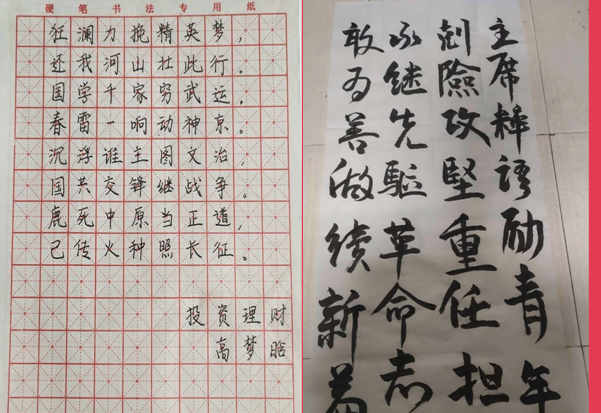 硬笔书法专用纸
狂澜力挽精英梦，
还我河山壮此行。
国学千家穷武运，
春雷一响动神京。
沉浮谁主图文治，
国共交锋继战争。
鹿死中原当正道，
已传火种照长征。
投资理财
高梦晗
主席释语励青年
剑险攻坚重任担
承继先驱革命志
敢为善做续新篇